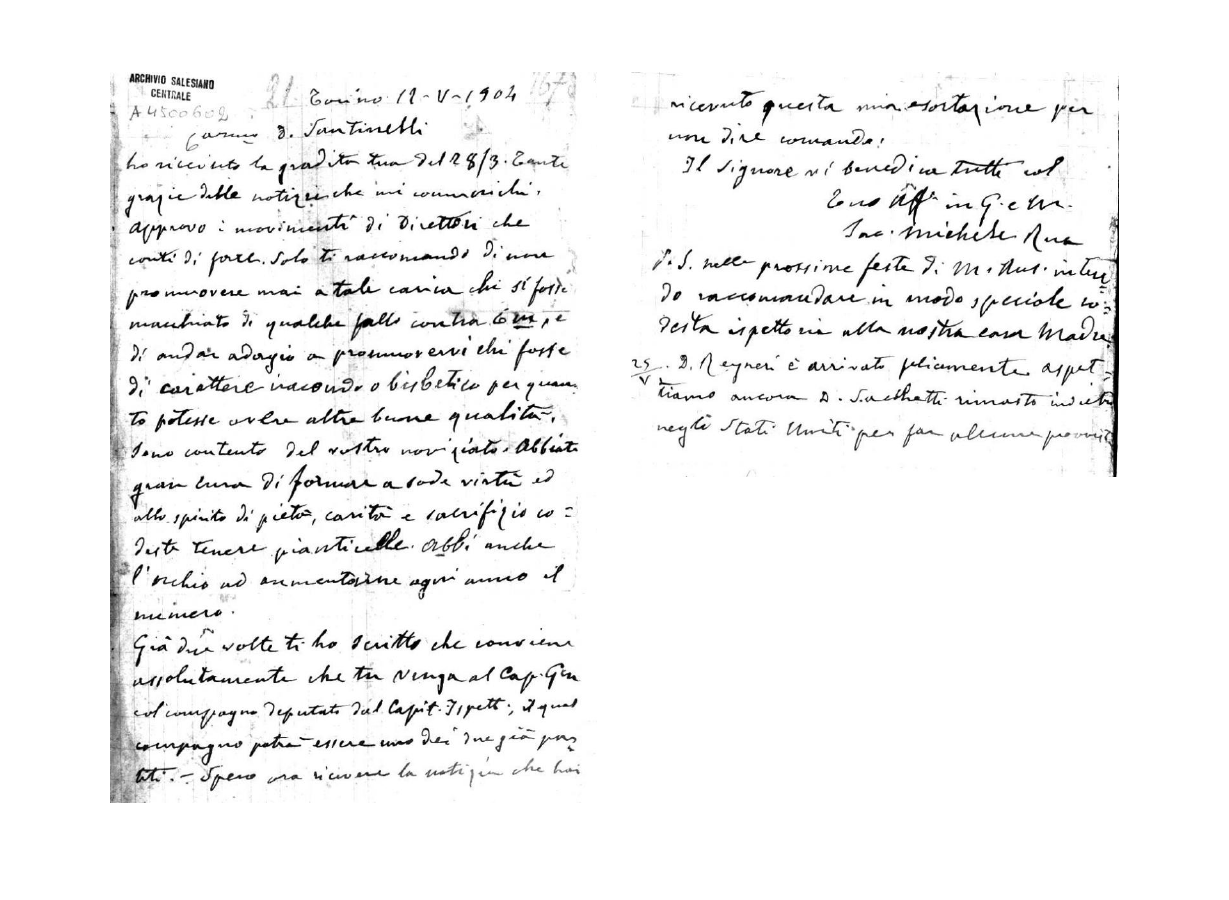 ARCHIVIO SALESIANO
CENTRALE
A4500602
21
Torino 12-V-1904
Carmo D. Santinelli
ho ricevuto la gradita tua del 28/3. Tante
grazie delle notizie che mi comunichi.
Approvo i movimenti di Direttori che
conti di fare. Solo ti raccomando di non
promuovere mai a tale carica chi si fosse
macchiato di qualche fallo contra 6m, e
di andar adagio a promuovervi chi fosse
di carattere iracondo o bisbetico per quan-
to potesse avere altre buone qualità.
Sono contento del vostro noviziato. Abbiate
gran cura di formar a sode virtù ed
allo spirito di pietà, carità e sacrifizio co=
deste tenere pianticelle. Abbi anche
l'occhio ad aumentarne ogni anno il
numero.
Già due volte ti ho scritto che conviene
assolutamente che tu venga al Cap. Gen
col compagno deputato dal Capit. Ispett.; il qual
compagno potrà essere uno dei due già par-
titi. - Spero ora ricevere la notizia che hai
ricevuto questa mia esortazione per
non dire comando.
Il Signore vi benedica tutti col
Tuo Aff. in G. e M.
Sac. Michele Rua
P.S. nelle prossime feste di M. Aus. inten-
do raccomandare in modo speciale co=
desta ispettoria alla nostra cara Madre.
25/V. D. Regneri è arrivato felicemente aspet-
tiamo ancora D. Sacchetti rimasto indietro
negli Stati Uniti per far alcune provviste